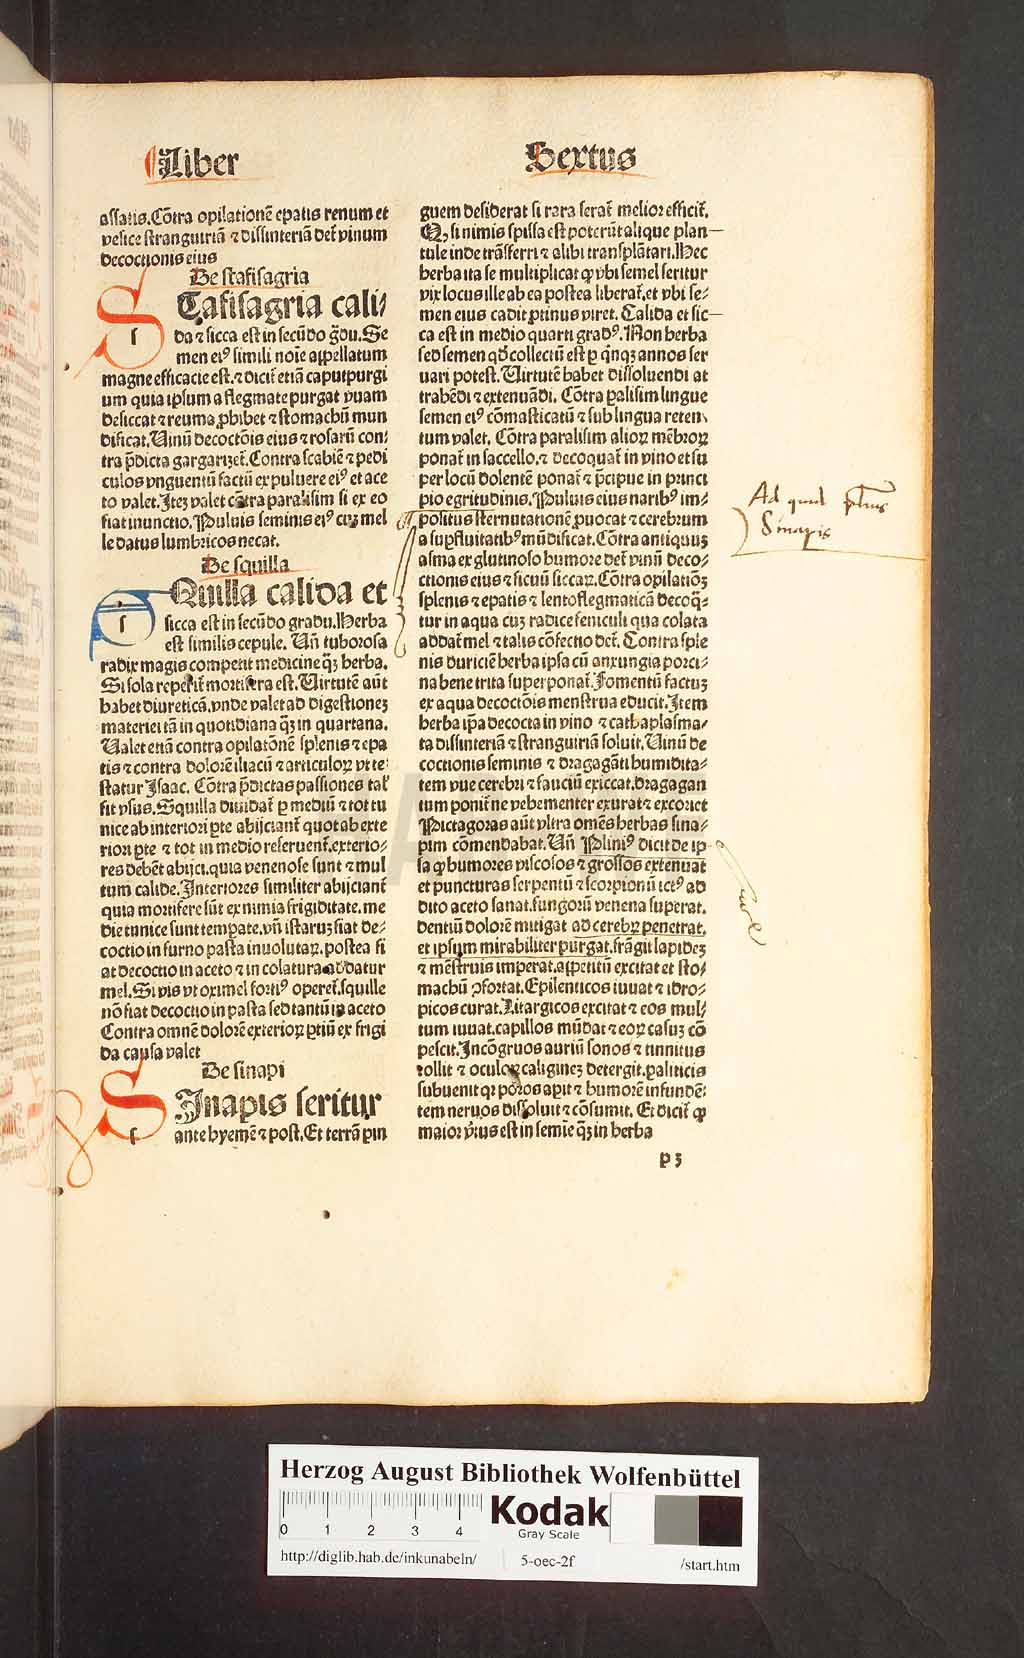 Liber
Sextus
assatis. Cõtra opilationē epatis renum et
vesice stranguiriã ⁊ dissinteriã det̃ vinum
decoctionis eius
De stafisagria
STafisagria cali⸗
da ⁊ sicca est in secũdo g̃du. Se
men eiꝰ simili noĩe appellatum
magne efficacie est. ⁊ dicit̃ etiã caputpurgi
um quia ipsum a flegmate purgat vuam
desiccat ⁊ reuma ꝓhibet ⁊ stomachũ mun
dificat. Uinũ decoctõis eius ⁊ rosarũ con⸗
tra p̃dicta gargarizet̃. Contra scabiē ⁊ pedi
culos vnguentũ factũ ex puluere eiꝰ et ace
to valet. Itez valet cõtra paralisim si ex eo
fiat inunctio. Puluis seminis eiꝰ cuꝫ mel
le datus lumbricos necat.
De squilla
SQuilla calida et
sicca est in secũdo gradu. Herba
est similis cepule. Uñ tuborosa
radix magis competit medicine q̃ꝫ herba.
Si sola reperit̃ mortifera est. Uirtutē aũt
habet diureticã. vnde valet ad digestioneꝫ
materiei tã in quotidiana q̃ꝫ in quartana.
Ualet etiã contra opilatõnē splenis ⁊ epa
tis ⁊ contra dolorē iliacũ ⁊ articuloꝝ vt te⸗
statur Isaac. Cõtra p̃dictas passiones tał
fit vsus. Squilla diuidat̃ ꝑ mediũ ⁊ tot tu
nice ab interiori ꝑte abijciant̃ quot ab exte
riori ꝑte ⁊ tot in medio reseruent̃. exterio⸗
res debēt abijci. quia venenose sunt ⁊ mul
tum calide. Interiores similiter abijciant̃
quia mortifere sũt ex nimia frigiditate. me
die tunice sunt temꝑate. vñ istaruꝫ fiat de⸗
coctio in furno pasta inuolutaꝝ. postea fi
at decoctio in aceto ⁊ in colatura addatur
mel. Si vis vt oximel fortiꝰ operet̃. squille
nõ fiat decoctio in pasta sed tantũ in aceto
Contra omnē dolorē exterioꝝ ꝑtiũ ex frigi
da causa valet
De sinapi
SInapis seritur
ante hyemē ⁊ post. Et terrã pin
guem desiderat si rara serat̃ melior efficit̃.
Qꝫ si nimis spissa est poterũt alique plan⸗
tule inde trãsferri ⁊ alibi transplãtari. Hec
herba ita se multiplicat ꝙ vbi semel seritur
vix locus ille ab ea postea liberat̃. et vbi se⸗
men eius cadit ꝓtinus viret. Calida et sic⸗
ca est in medio quarti gradꝰ. Non herba
sed semen qd̃ collectũ est ꝑ q̃nqꝫ annos ser
uari potest. Uirtutē habet dissoluendi at
trahēdi ⁊ extenuãdi. Cõtra ꝑalisim lingue
semen eiꝰ cõmasticatũ ⁊ sub lingua reten⸗
tum valet. Cõtra paralisim alioꝝ mēbroꝝ
ponat̃ in saccello. ⁊ decoquat̃ in vino et su
per locũ dolentē ponat̃ ⁊ p̃cipue in princi
pio egritudinis. Puluis eius naribꝰ im⸗
positus sternutationē ꝓuocat ⁊ cerebrum
a suꝑfluitatibꝰ mũdificat. Cõtra antiquuꝫ
asma ex glutinoso humore det̃ vinũ deco⸗
ctionis eius ⁊ sicuũ siccaꝝ. Cõtra opilatiõꝫ
splenis ⁊ epatis ⁊ lentoflegmaticã decoq̃⸗
tur in aqua cuꝫ radice feniculi qua colata
addat̃ mel ⁊ talis cõfectio det̃. Contra sple
nis duriciē herba ipsa cũ anxungia porci⸗
na bene trita superponat̃. Fomentũ factuꝫ
ex aqua decoctõis menstrua educit. Item
herba ip̃a decocta in vino ⁊ cathaplasma⸗
ta dissinteriã ⁊ stranguiriã soluit. Uinũ de
coctionis seminis ⁊ dragagãti humidita⸗
tem vue cerebri ⁊ fauciũ exiccat. dragagan
tum ponit̃ ne vehementer exurat ⁊ excoriet
Pictagoras aũt vltra omēs herbas sina⸗
pim cõmendabat. Uñ Pliniꝰ dicit de ip⸗
sa ꝙ humores viscosos ⁊ grossos extenuat
et puncturas serpentũ ⁊ scorpionũ ictꝰ ad
dito aceto sanat. fungorũ venena superat.
dentiũ dolorē mitigat ad cerebꝝ penetrat.
et ipsum mirabiliter purgat. frãgit lapideꝫ
⁊ mēstruis imperat. appetitũ excitat et sto⸗
machũ ꝯfortat. Epilenticos iuuat ⁊ idro⸗
picos curat. Litargicos excitat ⁊ eos mul⸗
tum iuuat. capillos mũdat ⁊ eoꝝ casuꝫ cõ
pescit. Incõgruos auriũ sonos ⁊ tinnitus
tollit ⁊ oculoꝝ caligineꝫ detergit. ꝑaliticis
subuenit qꝛ poros aꝑit ⁊ humorē infundē⸗
tem neruos dissoluit ⁊ cõsumit. Et dicit̃ ꝙ
maior v̓tus est in semīe q̃ꝫ in herba
p 3
Ad quid
Sinapis
Herzog August Bibliothek Wolfenbüttel
0 1 2 3 4
Kodak
Gray Scale
http://diglib.hab.de/inkunabeln/
5-oec-2f
/start.htm
HAB